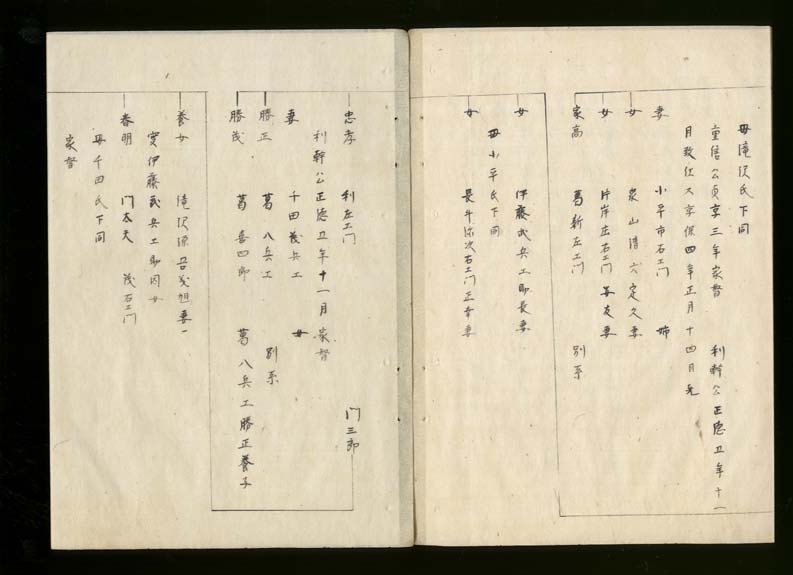 母滝沢氏下同
重信公貞享三年家督 利幹公正徳五年十一
月致仕又享保四年正月十四日死
妻 小平市右エ門 姉
女 泉山清六定久妻
女 片岸庄右エ門 友妻
家高 葛新左エ門 別系
女 伊藤武兵エ 長妻
母小平氏下同
女 長牛弥次右エ門正 妻
忠孝 利左エ門 門三郎
利幹公正徳五年十一月家督
妻 千田茂兵エ 女
勝正 葛八兵エ 別系
勝茂 葛喜四郎 葛八兵エ勝正養子
養女 滝沢 妻
実伊藤武兵エ 女
春明 門太夫 茂右エ門
母千田氏下同
家督